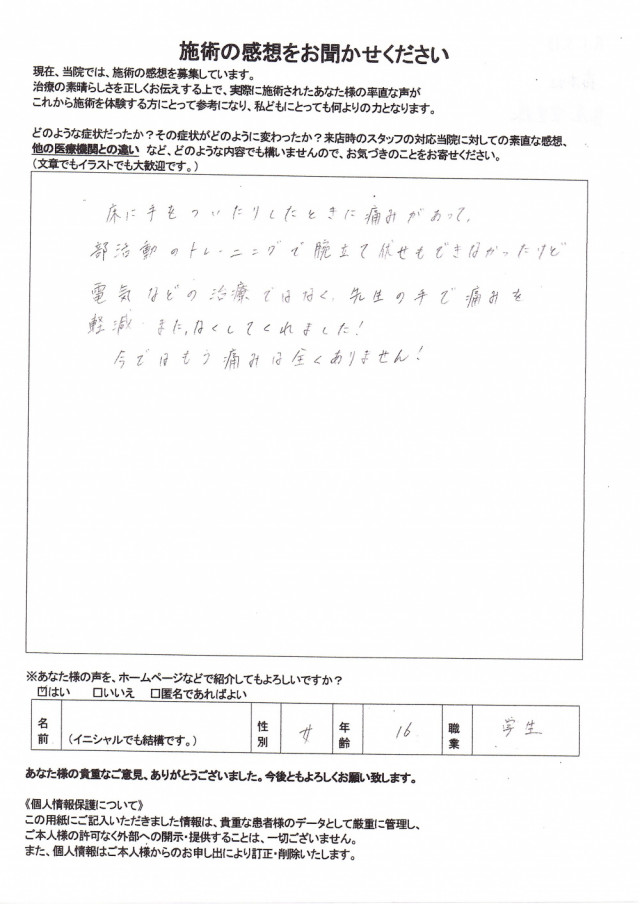 施術の感想をお聞かせください
現在、当院では、施術の感想を募集しています。
治療の素晴らしさを正しくお伝えする上で、実際に施術されたあなた様の率直な声が
これから施術を体験する方にとって参考になり、私どもにとっても何よりの力となります。
どのような症状だったか？その症状がどのように変わったか？来店時のスタッフの対応当院に対しての素直な感想、
他の医療機関との違い など、どのような内容でも構いませんので、お気づきのことをお寄せください。
（文章でもイラストでも大歓迎です。）
床に手をついたりしたときに痛みがあって、
部活動のトレーニングで腕立て伏せもできなかったけど
電気などの治療ではなく、先生の手で痛みを
軽減、また、なくしてくれました！
今ではもう痛みは全くありません！
※あなた様の声を、ホームページなどで紹介してもよろしいですか？
☑はい □いいえ □匿名であればよい
名前 （イニシャルでも結構です。） 性別 女 年齢 16 職業 学生
あなた様の貴重なご意見、ありがとうございました。今後ともよろしくお願い致します。
《個人情報保護について》
この用紙にご記入いただきました情報は、貴重な患者様のデータとして厳重に管理し、
ご本人様の許可なく外部への開示・提供することは、一切ございません。
また、個人情報はご本人様からのお申し出により訂正・削除いたします。